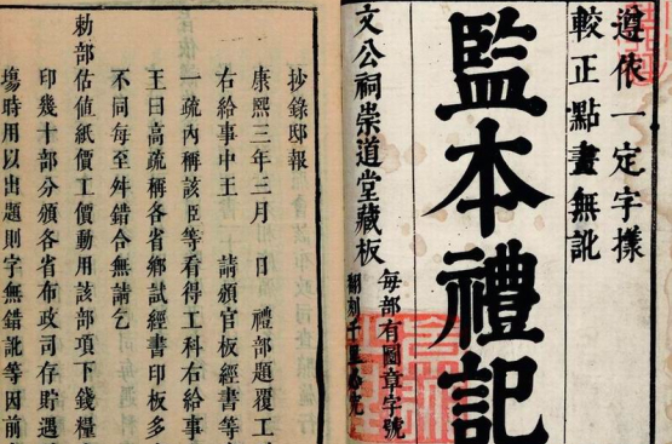 遵依一定字樣
較正點畫無訛
監本禮記
文公祠崇道堂藏板
每部有圖章字號
翻刻千里必究
抄錄邸報
康熙三年三月　日　禮部題覆工
右給事中王　請頒官板經書等
一疏內稱該臣等看得工科右給事
王曰高疏稱各省鄉試經書印板多
不同每至舛錯合無請乞
勅部估值紙價工價動用該部項下錢糧
印幾十部分頒各省布政司存貯遇
塲時用以出題則字無錯訛等因前